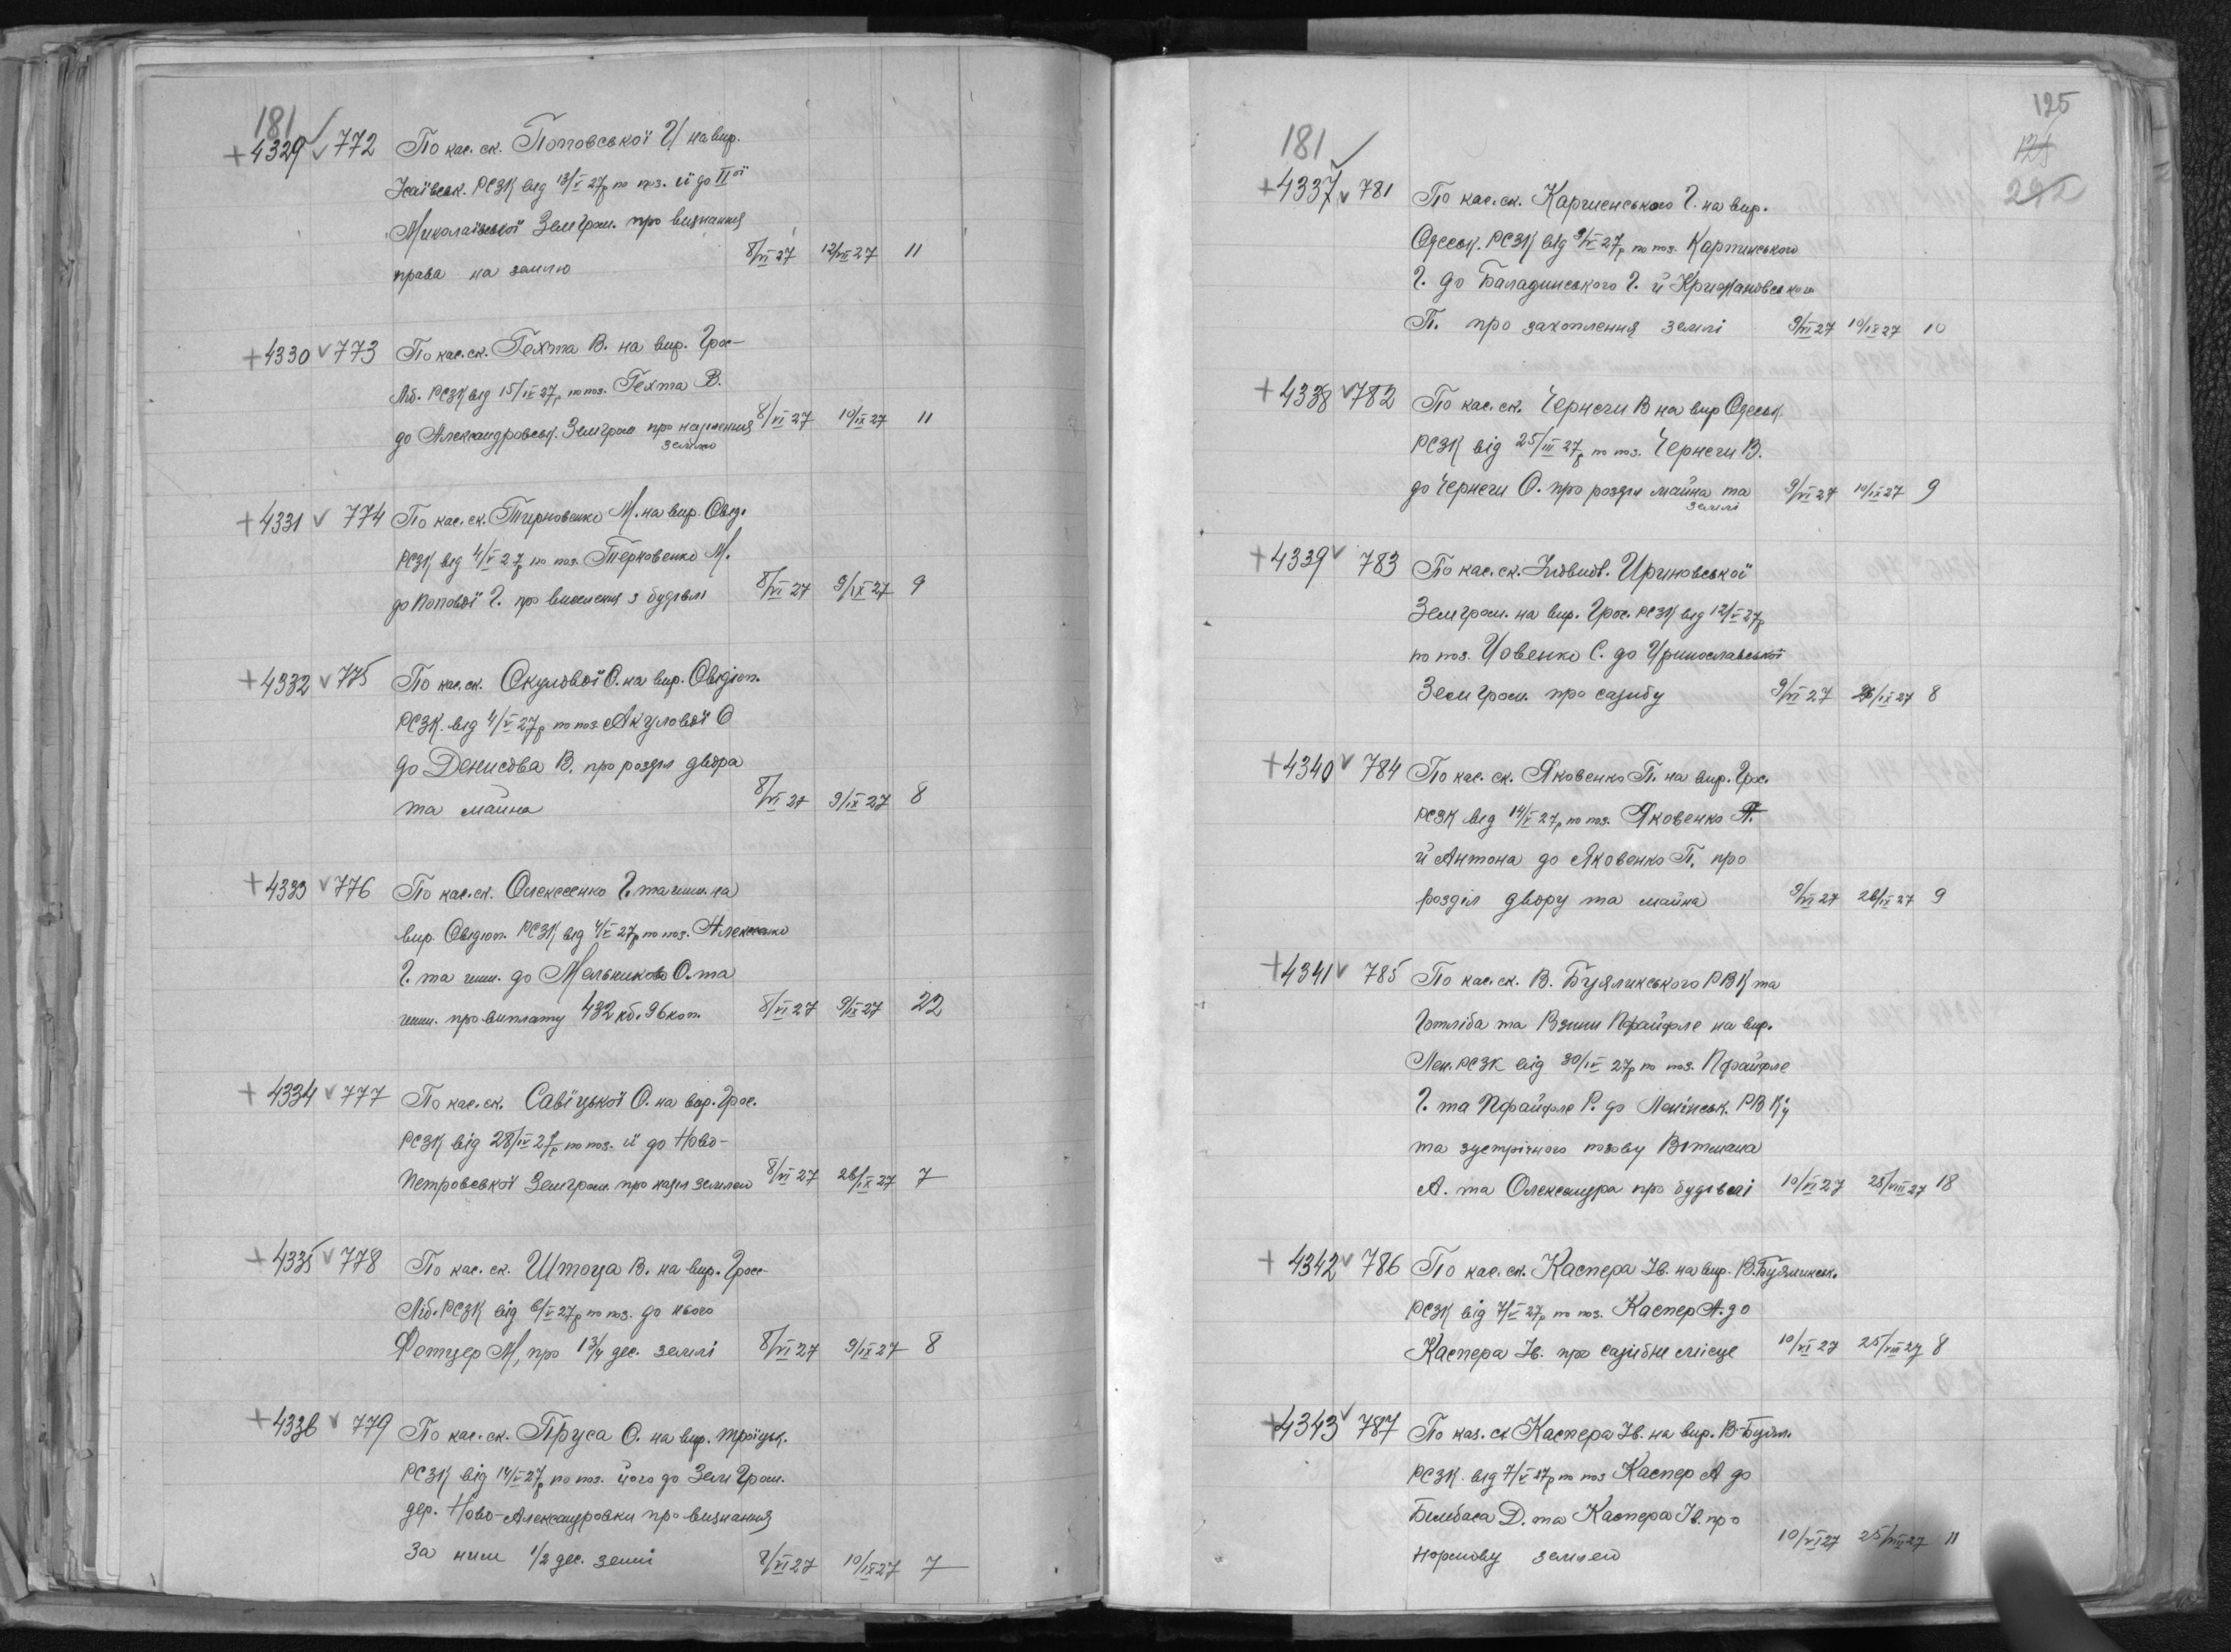 181
+4329 v 772 По кас. ск. Поповської Г/ на вир.
РСЗК від 13/V 27р по поз. її до IIої
МиколаївськоїЗемгром. про визнання
права на землю 8/VI 27 12/VII 27 11
+4330 v 773 По кас. ск. Гехта В. на вир. Грос-
Ліб. РСЗК від 15/IV 27р по поз. Гехта В.
до Александровськ. Земгром про наділення
землею 8/VI 27 10/IX 27 11
+4331 v 774 По кас. ск. Тирновенко М. на вир. Овід.
РСЗК від 4/V 27р по поз. Терновенко М.
до Попової Г. про виселення з будівлі 8/VI 27 9/IX 27 9
+4332 v 775 По кас. ск. Окулової О. на вир. Овідіоп.
РСЗК від 4/V 27р по поз. Акулової О
до Денисова В. про розділ двора
та майна 8/VI 27 9/IX 27 8
+4333 v 776 По кас. ск. Олексеенко Г. та инш. на
вир. Овідіоп. РСЗК від 4/V 27р по поз.
Г. та инш. до Мельникова О. та
инш. про виплату 432 кб. 96 коп. 8/VI 27 9/IX 27 22
+4334 v 777 По кас. ск. Савіцької О. на вир. Грос.
РСЗК від 28/IV 27р по поз. її до Ново-
Петровської Земгром. про наділ землею 8/VI 27 26/IX 27 7
+4335 v 778 По кас. ск. Штоца В. на вир. Грос-
Ліб. РСЗК від 6/V 27р по поз. до нього
Фотцер М, про 1 3/4 дес. землі 8/VI 27 9/IX 27 8
+4336 v 779 По кас. ск. Пруса О. на вир. Троїцьк.
РСЗК від 14/V 27р по поз. його до Зем Гром.
дер. Ново-Александровки про визнання
за ним 1/2 дес. землі 8/VI 27 10/IX 27 7
125
125
292
181
+4337 v 781 По кас. ск. Каргиенського Г. на вир.
Одеськ. РСЗК від 9/V 27р по поз. Картинського
Г. до Баладинського Г. й Крижановського
П. про захоплення землі 9/VI 27 10/IX 27 10
+4338 v 782 По кас. ск. Чернеги В на вир Одеськ.
РСЗК від 25/III 27р по поз. Чернеги В.
до Чернеги О. про розділ майна та
землі 9/VI 27 10/IX 27 9
+4339 v 783 По кас. ск. Уриновської
Земгром. на вир. Грос. РСЗК від 12/V 27р
по поз. Цовенко С. до
Земгром. про садибу 9/VI 27 26/IX 27 8
+4340 v 784 По кас. ск. Яковенко П. на вир. Грос.
РСЗК від 14/V 27р по поз. Яковенко П.
й Антона до Яковенко П. про
розділ двору та майна 9/VI 27 26/IX 27 9
+4341 v 785 По кас. ск. В. Буяликського РВК та
Готліба та Пфайфле на вир.
Лен. РСЗК від 30/IV 27р по поз. Пфайфле
Г. та Пфайфле Р. до Ленінськ. РВК'у
та зустрічного позову Вітмана
А. та Олександра про будівлі 10/VI 27 25/VIII 27 18
+4342 v 786 По кас. ск. Каспера Ів. на вир. В.Буяликськ.
РСЗК від 7/V 27р по поз. Каспер А. до
Каспера Ів. про садибне місце 10/VI 27 25/VIII 27 8
+4343 v 787 По каз. ск Каспера Ів. на вир. В-Буял.
РСЗК. від 7/V 27р по поз Каспер А до
Бимбаса Д. та Каспера Ів. про
нормову землею 10/VI 27 25/VIII 27 11